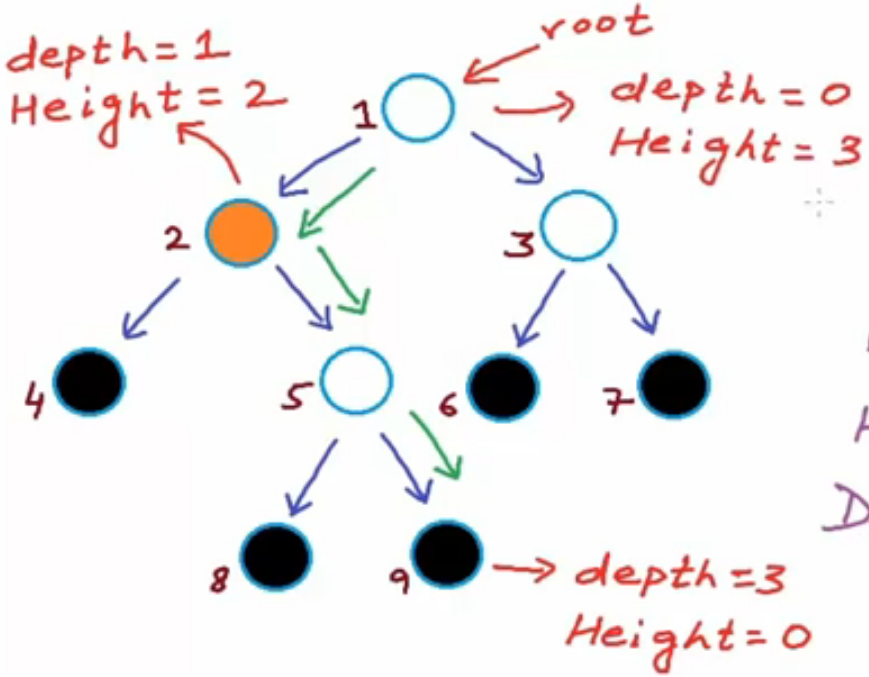 root
depth = 1
Height = 2
1
depth = 0
Height = 3
2
3
4
5
6
7
8
9
depth = 3
Height = 0
D